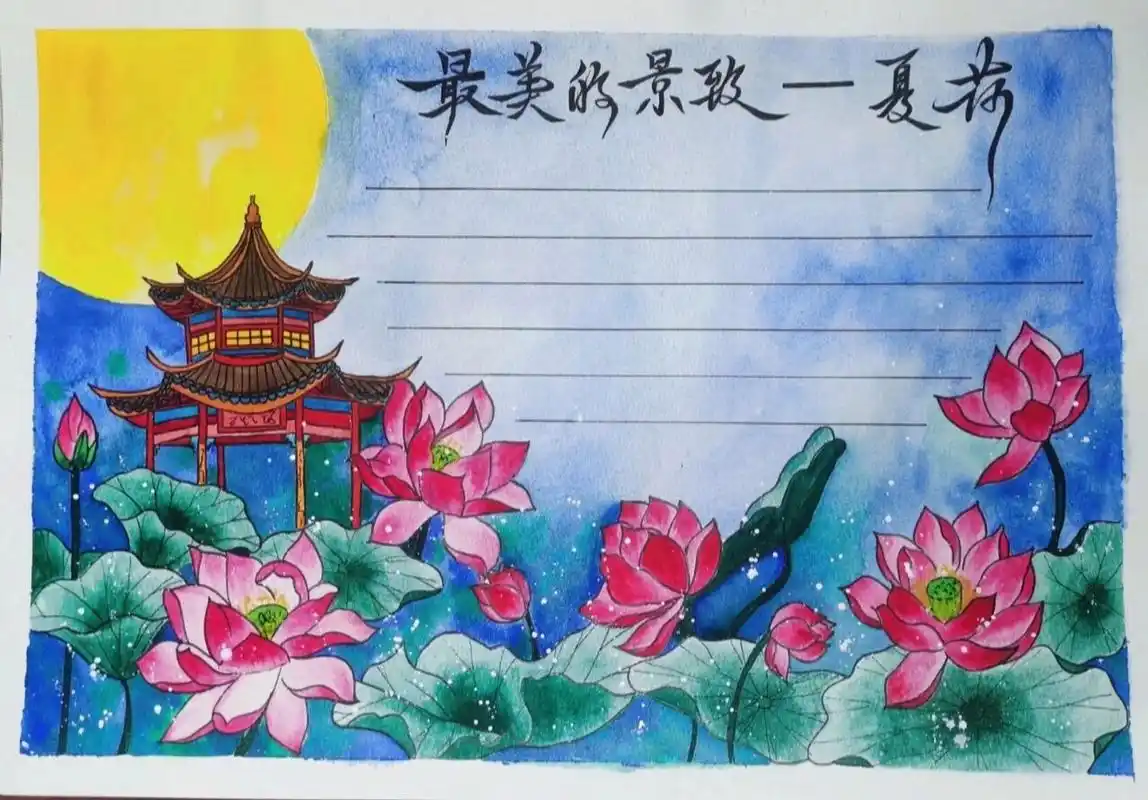 最美的景致一夏荷